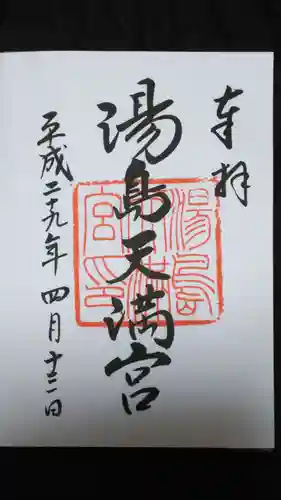 奉拝
湯島天満宮
平成二十九年四月十二日
湯島天満宮印